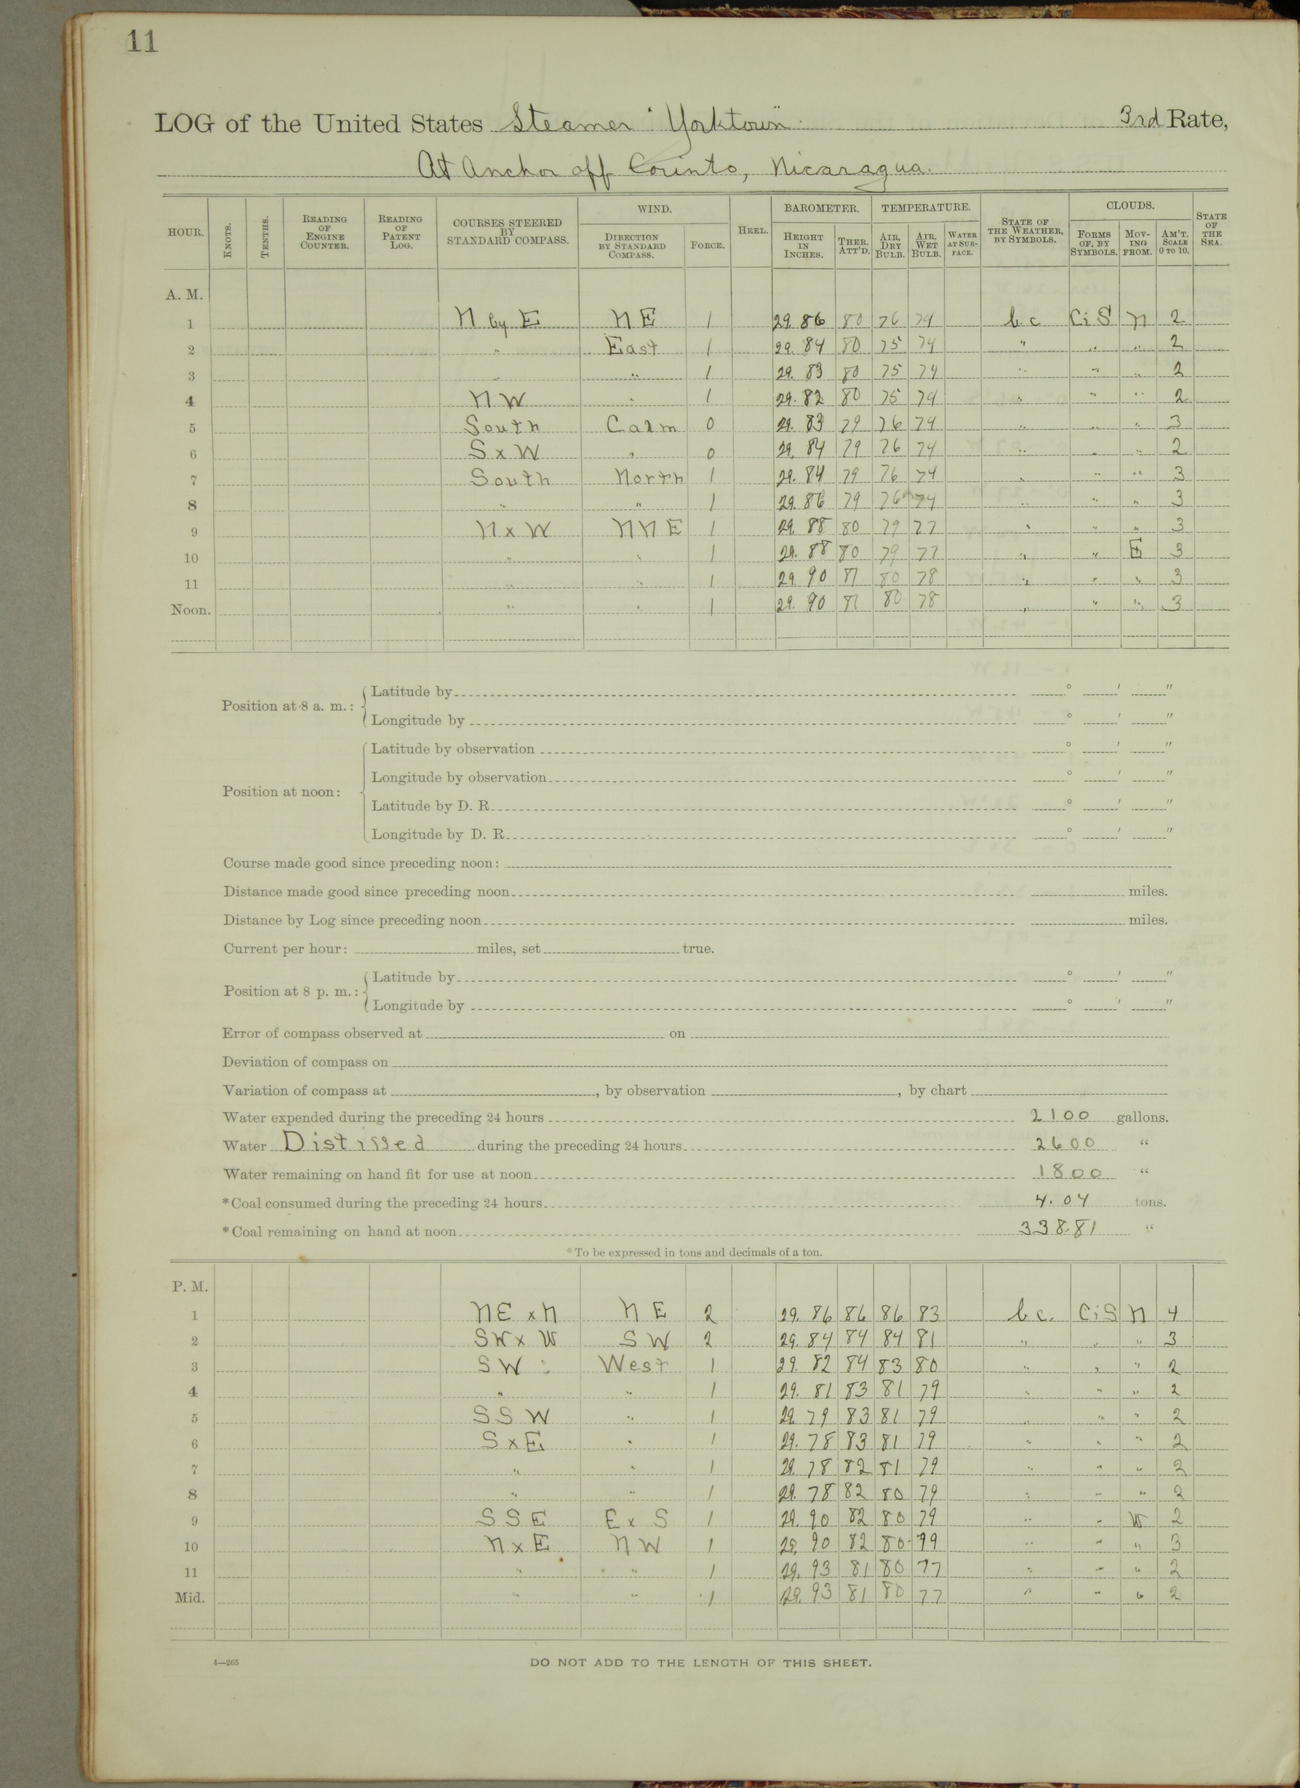 11
LOG of the United States Steamer "Yorktown" 3rd Rate,
At Anchor off Corinto, Nicaragua.
HOUR. KNOTS. TENTHS. READING OF ENGINE COUNTER. READING OF PATENT LOG. COURSES STEERED BY STANDARD COMPASS. WIND. DIRECTION BY STANDARD COMPASS. FORCE. HEEL. BAROMETER. HEIGHT IN INCHES. THER. ATT'D. TEMPERATURE. AIR, DRY BULB. AIR, WET BULB. WATER AT SURFACE. STATE OF THE WEATHER, BY SYMBOLS. CLOUDS. FORMS OF, BY SYMBOLS. MOVING FROM. AM'T. SCALE 0 TO 10. STATE OF THE SEA.
A. M.
1 N by E NE 1 29.86 80 76 74 bc CiS N 2
2 " East 1 29.84 80 75 74 " " " 2
3 " " 1 29.83 80 75 74 " " " 2
4 NW " 1 29.82 80 75 74 " " " 2
5 South Calm 0 29.83 79 76 74 " " " 3
6 SxW " 0 29.84 79 76 74 " " " 2
7 South North 1 29.84 79 76 74 " " " 3
8 " " 1 29.86 79 76 74 " " " 3
9 NxW NNE 1 29.88 80 79 77 " " " 3
10 " " 1 29.88 80 79 77 " " E 3
11 " " 1 29.90 81 80 78 " " " 3
Noon. " " 1 29.90 81 80 78 " " " 3
Position at 8 a. m.: Latitude by ° ' "
Longitude by ° ' "
Position at noon: Latitude by observation ° ' "
Longitude by observation ° ' "
Latitude by D. R. ° ' "
Longitude by D. R. ° ' "
Course made good since preceding noon:
Distance made good since preceding noon miles.
Distance by Log since preceding noon miles.
Current per hour: miles, set true.
Position at 8 p. m.: Latitude by ° ' "
Longitude by ° ' "
Error of compass observed at on
Deviation of compass on
Variation of compass at , by observation , by chart
Water expended during the preceding 24 hours 2100 gallons.
Water Distilled during the preceding 24 hours 2600 "
Water remaining on hand fit for use at noon 1800 "
*Coal consumed during the preceding 24 hours 4.04 tons.
*Coal remaining on hand at noon 338.81 "
*To be expressed in tons and decimals of a ton.
P. M.
1 NExN NE 2 29.86 86 86 83 bc. CiS N 4
2 SWxW SW 2 29.84 84 84 81 " " " 3
3 SW West 1 29.82 84 83 80 " " " 2
4 " " 1 29.81 83 81 79 " " " 2
5 SSW " 1 29.79 83 81 79 " " " 2
6 SxE " 1 29.78 83 81 79 " " " 2
7 " " 1 29.78 82 81 79 " " " 2
8 " " 1 29.78 82 80 79 " " " 2
9 SSE ExS 1 29.90 82 80 79 " " W 2
10 NxE NW 1 29.90 82 80 79 " " " 3
11 " " 1 29.93 81 80 77 " " " 2
Mid. " " 1 29.93 81 80 77 " " " 2
4—265
DO NOT ADD TO THE LENGTH OF THIS SHEET.